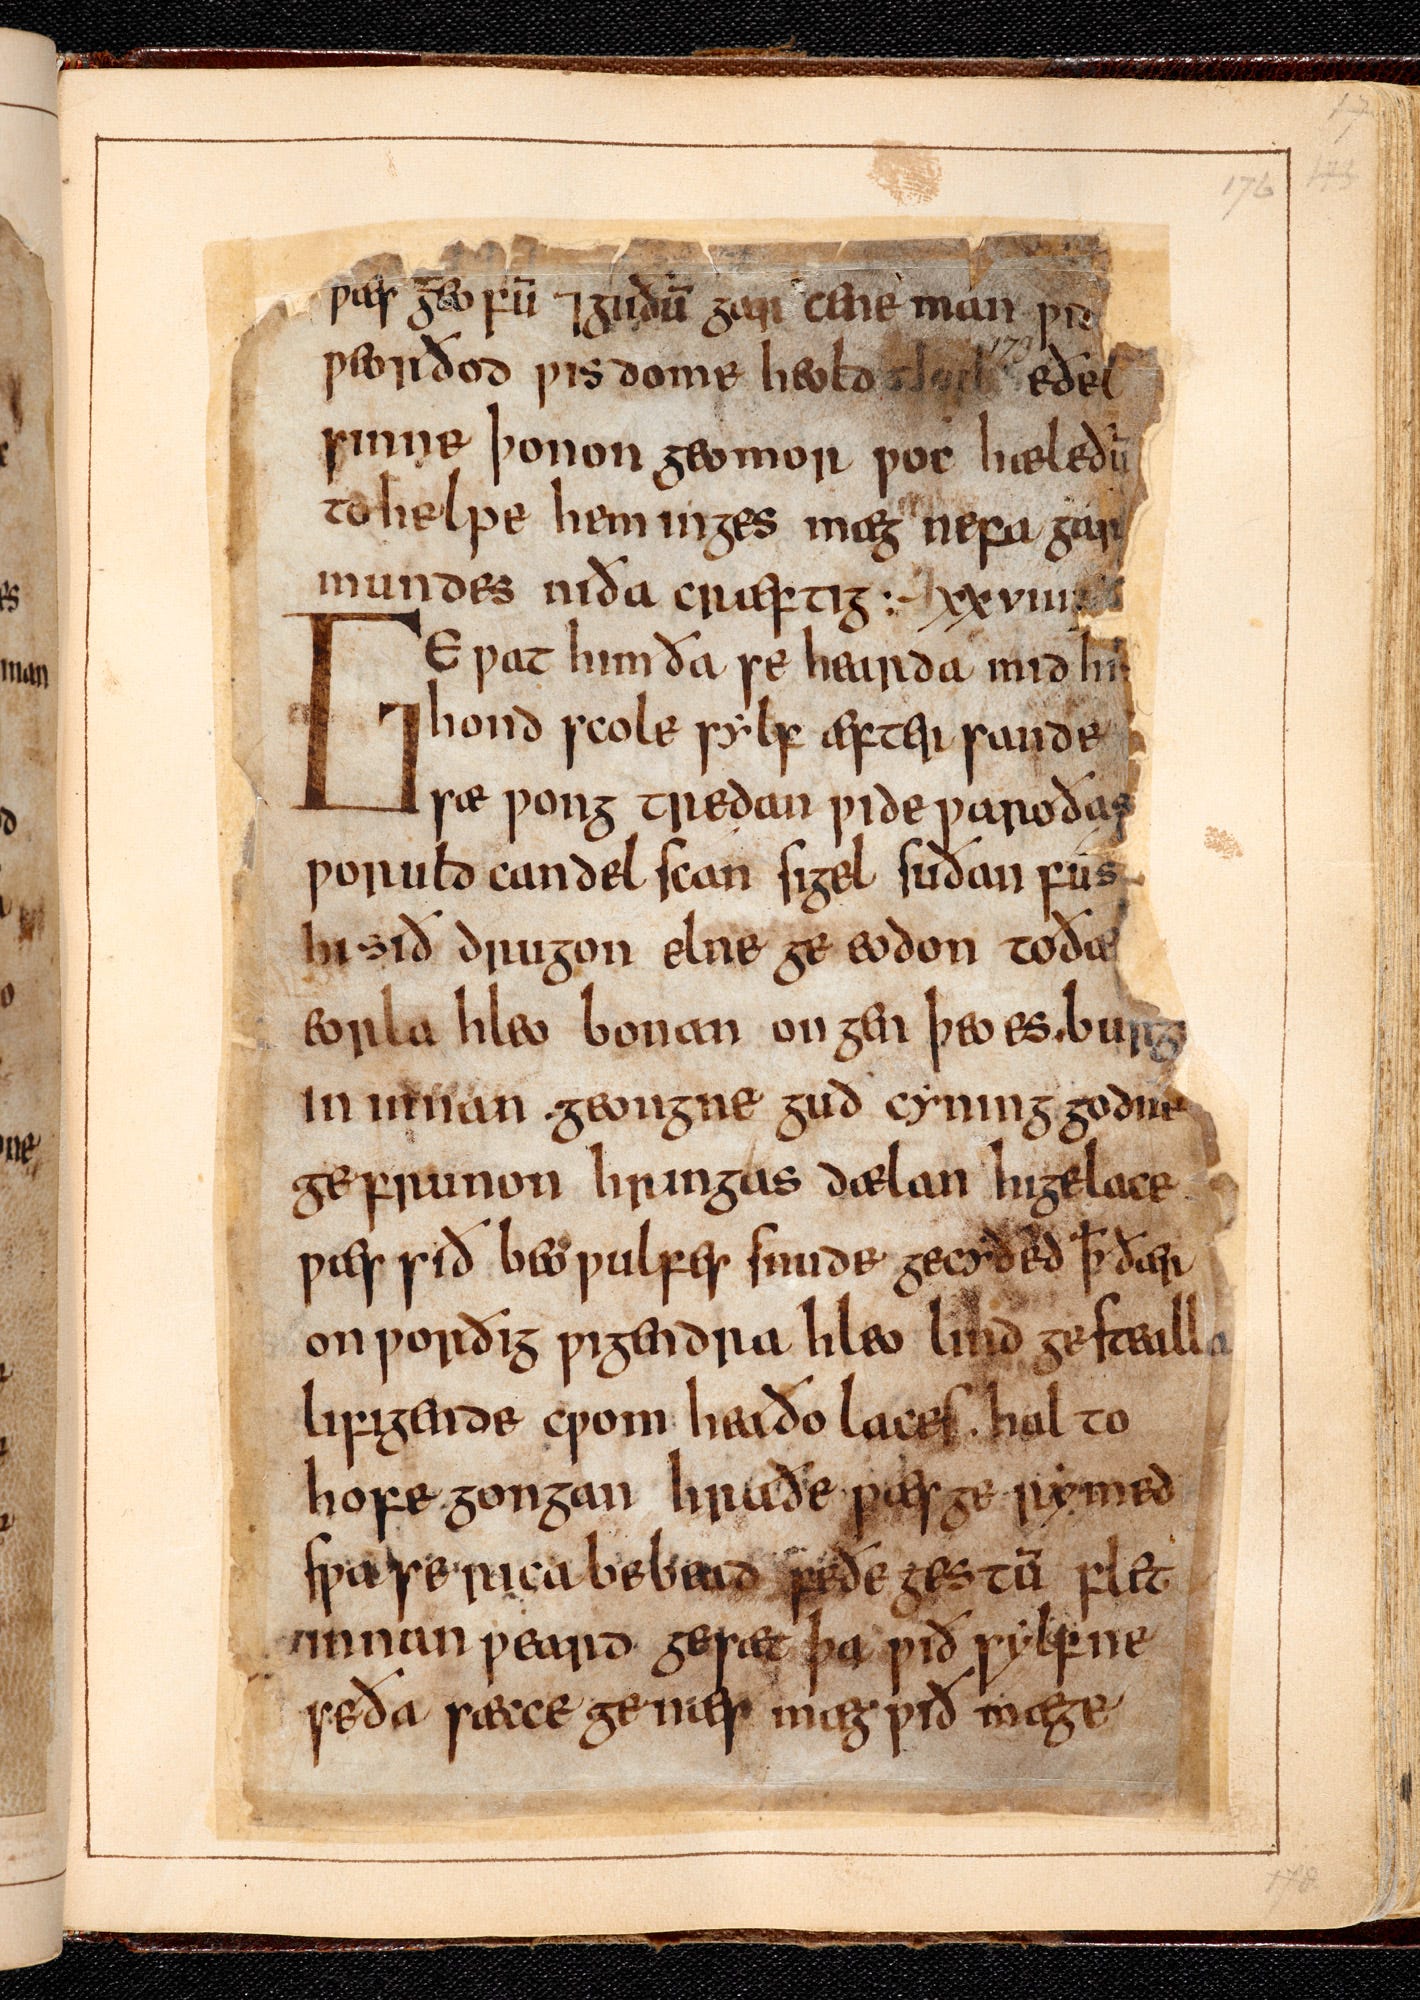 176
ƿæs geofū ⁊ guðū gar cene man ƿide
ƿeorðod ƿisdome heold eðel
sinne þonon geomor ƿoc hæleðū
to helpe heminges mæg nefa gar
mundes niða cræftig :⁊ XXVIII
GEƿat him ða se hearda mid his
hond scole sylf æfter sande
sæ ƿong tredan ƿide ƿaroðas
ƿoruld candel scan sigel suðan fus
hi sið drugon elne ge eodon to ðæs
eorla hleo bonan ongen þeoes . burgū
in innan . geongne guð cyning godne
gefrunon hringas dælan higelace
ƿæs sið beoƿulfes snude gecyðed ꝥ ðær
on ƿorðig ƿigendra hleo lind gestealla
lifigende cƿom heaðo laces . hal to
hofe gongan hraðe ƿæs ge rymed
sƿa se rica bebead feðe gestū flet
innan ƿeard gesæt þa ƿið sylfne
se ða sæcce ge næs mæg ƿið mæge